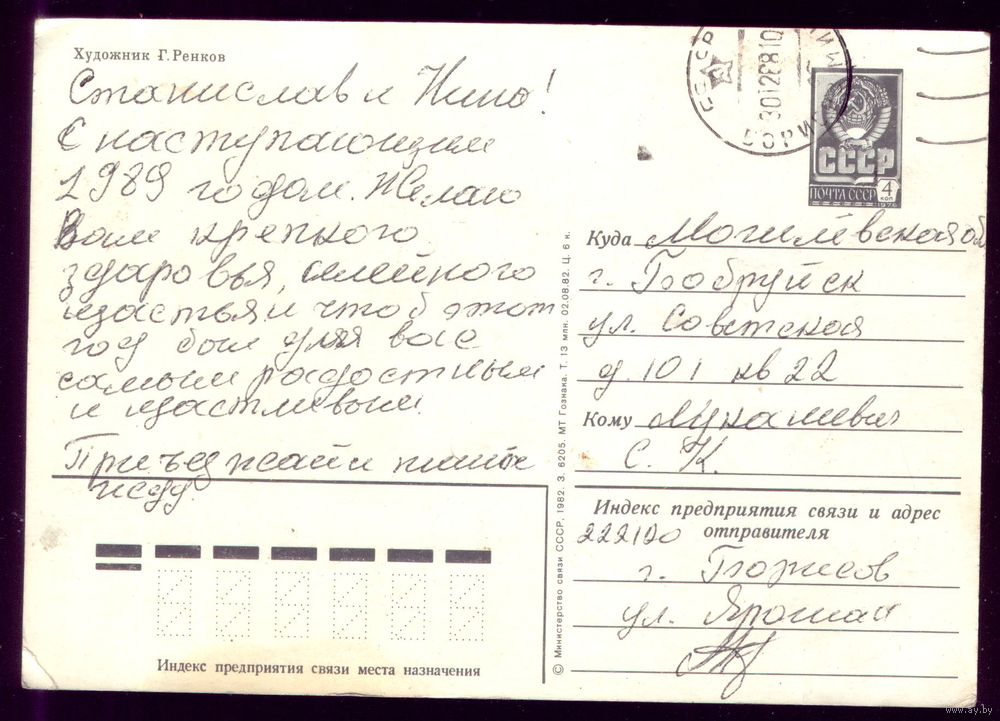 Художник Г. Ренков
Станислав и Нина!
С наступающим
1989 годом. Желаю
Вам крепкого
здаровья, семейного
щастья и чтоб этот
год был для вас
самым радостным
и щастливым
Приъезжай
жду.
СССР
ПОЧТА СССР 4 КОП
1976
Куда Могилёвская об
г. Бобруйск
ул. Советская
д. 101 кв 22
Кому Лукашевич
С. К.
Индекс предприятия связи и адрес
222120 отправителя
г. Борисов
ул.
Индекс предприятия связи места назначения
© Министерство связи СССР, 1982. З. 6205. МТ Гознака. Т. 13 млн. 02.08.82. Ц. 6 к.
www.ay.by